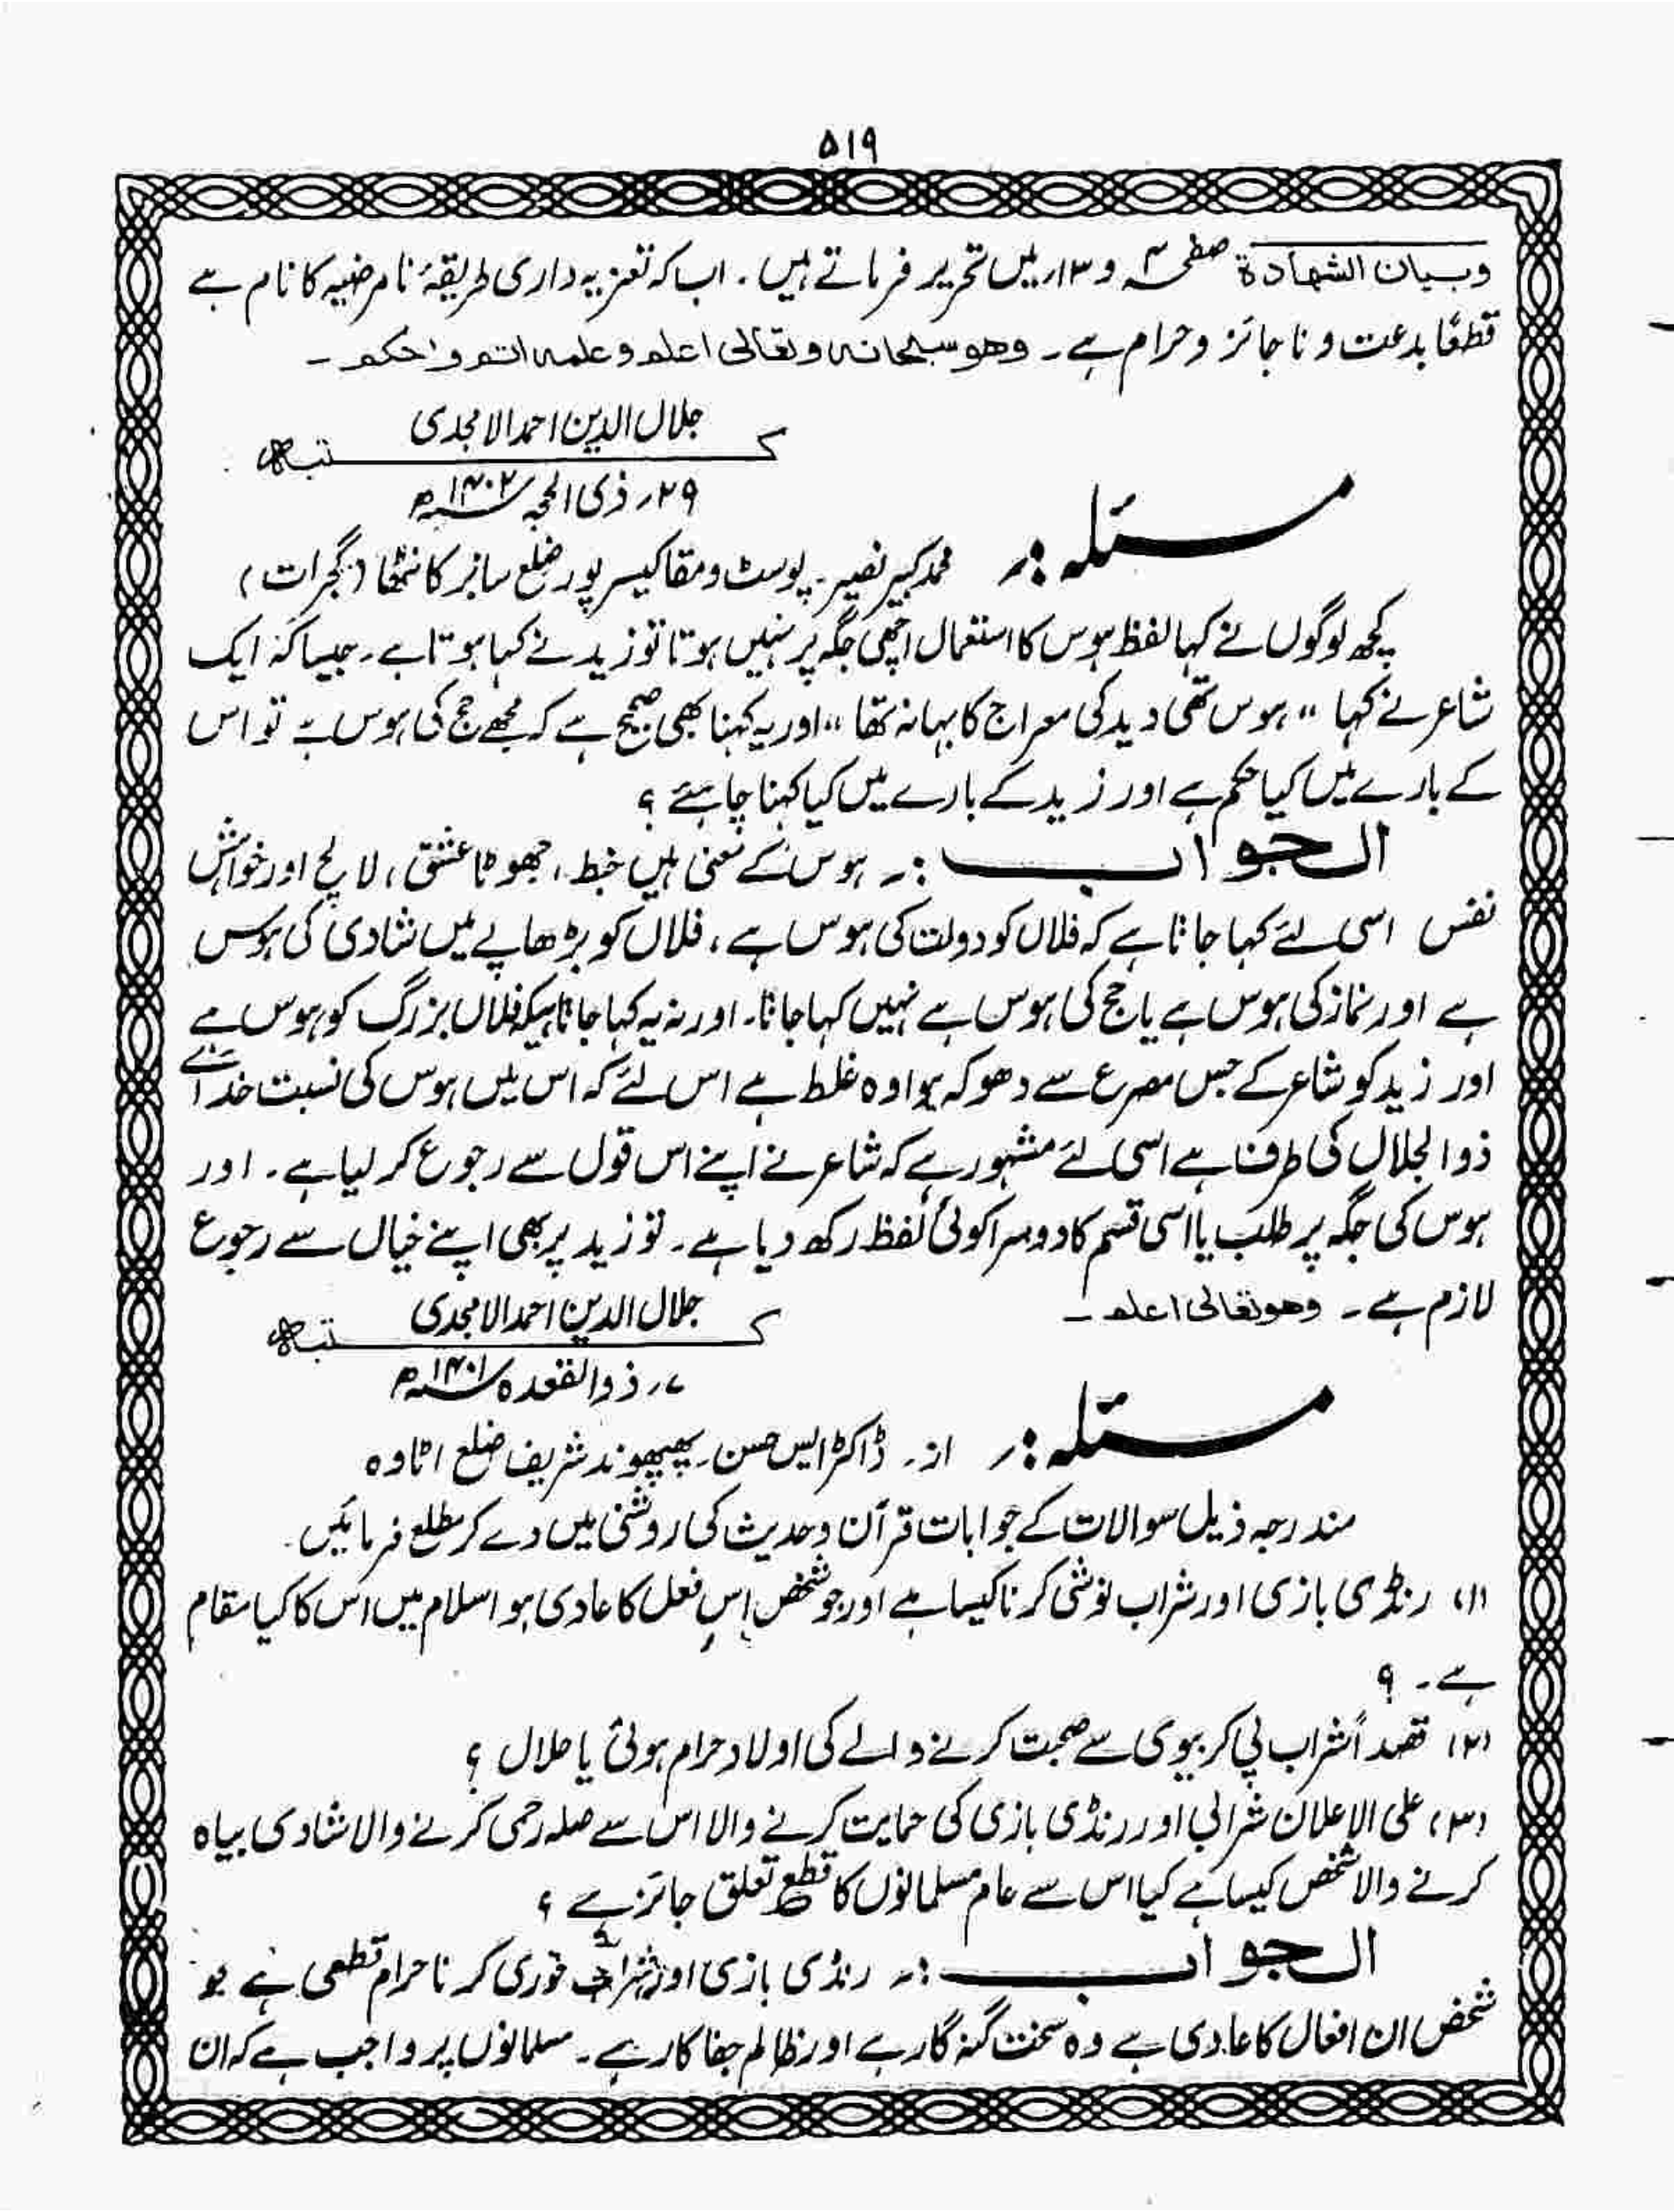 ۵۱۹
وبیان الشہادۃ صفحہ ۳ و ۱۳ میں تحریر فرماتے ہیں ۔ اب کہ تعزیہ داری طریقۂ نامرضیہ کا نام ہے
قطعًا بدعت و ناجائز و حرام ہے ۔ وھو سبحانہ وتعالی اعلم وعلمہ اتم واحکم ۔
جلال الدین احمد الامجدی
کتبہ
۲۹؍ ذی الحجہ سنہ ۱۴۰۲ھ
مسئلہ :؍ محمد کبیر نصیر ۔ پوسٹ ومقا کیسر پور ضلع سابر کانٹھا (گجرات)
کچھ لوگوں نے کہا لفظ ہوس کا استعمال اچھی جگہ پر نہیں ہوتا تو زید نے کہا ہوتا ہے ۔ جیسا کہ ایک
شاعر نے کہا ،، ہوس تھی دید کی معراج کا بہانہ تھا ،، اور یہ کہنا بھی صحیح ہے کہ مجھے حج کی ہوس ہے تو اس
کے بارے میں کیا حکم ہے اور زید کے بارے میں کیا کہنا چاہئے ؟
الجواب :؍ ہوس کے معنی ہیں خبط ، جھوٹا عشق ، لالچ اور خواہش
نفس اسی لئے کہا جاتا ہے کہ فلاں کو دولت کی ہوس ہے ، فلاں کو بڑھاپے میں شادی کی ہوس
ہے اور نماز کی ہوس ہے یا حج کی ہوس ہے نہیں کہا جاتا ۔ اور نہ یہ کہا جاتا ہیکہ فلاں بزرگ کو ہوس ہے
اور زید کو شاعر کے جس مصرع سے دھوکہ ہوا وہ غلط ہے اس لئے کہ اس میں ہوس کی نسبت خدائے
ذوالجلال کی طرف ہے اسی لئے مشہور ہے کہ شاعر نے اپنے اس قول سے رجوع کر لیا ہے ۔ اور
ہوس کی جگہ پر طلب یا اسی قسم کا دوسرا کوئی لفظ رکھ دیا ہے ۔ تو زید پر بھی اپنے خیال سے رجوع
لازم ہے ۔ وھو تعالی اعلم ۔
جلال الدین احمد الامجدی
کتبہ
۷؍ ذوالقعدہ سنہ ۱۴۰۱ھ
مسئلہ :؍ از ۔ ڈاکٹر ایس حسن ۔ پھپھوند شریف ضلع اٹاوہ
مندرجہ ذیل سوالات کے جوابات قرآن وحدیث کی روشنی میں دے کر مطلع فرمائیں ۔
(۱) رنڈی بازی اور شراب نوشی کرنا کیسا ہے اور جو شخص اس فعل کا عادی ہو اسلام میں اس کا کیا مقام
ہے ۔ ؟
(۲) قصداً شراب پی کر بیوی سے صحبت کرنے والے کی اولاد حرام ہوئی یا حلال ؟
(۳) علی الاعلان شرابی اور رنڈی بازی کی حمایت کرنے والا اس سے صلہ رحمی کرنے والا شادی بیاہ
کرنے والا شخص کیسا ہے کیا اس سے عام مسلمانوں کا قطع تعلق جائز ہے ؟
الجواب :؍ رنڈی بازی اور شراب خوری کرنا حرام قطعی ہے جو
شخص ان افعال کا عادی ہے وہ سخت گنہ گار ہے اور ظالم جفا کار ہے ۔ مسلمانوں پر واجب ہے کہ ان